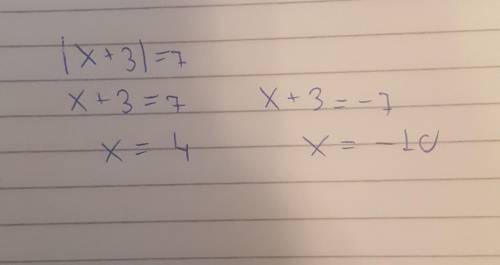 |x+3|=7
x+3=7 x+3=-7
x=4 x=-10